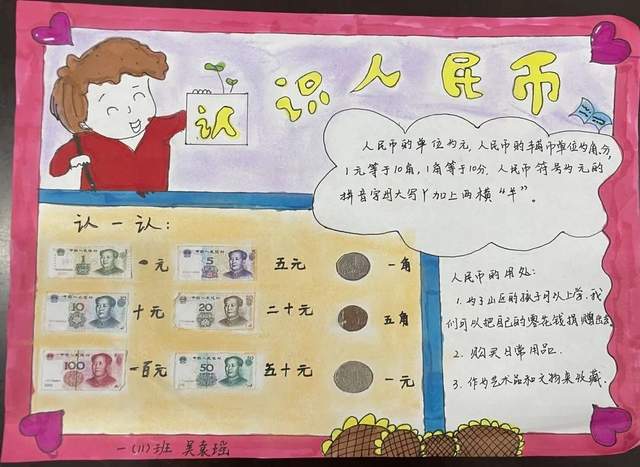 认识人民币
人民币的单位为元,人民币的辅币单位为角,分,
1元等于10角,1角等于10分,人民币符号为元的
拼音字母大写丫加上两横“羊”。
认一认:
1 一元
5 五元
一角
10 十元
20 二十元
五角
100 一百元
50 五十元
一元
人民币的用处:
1.为了山区的孩子可以上学,我
们可以把自己的零花钱捐赠出去
2.购买日常用品.
3.作为艺术品和文物来收藏.
一(11)班 吴袁瑶